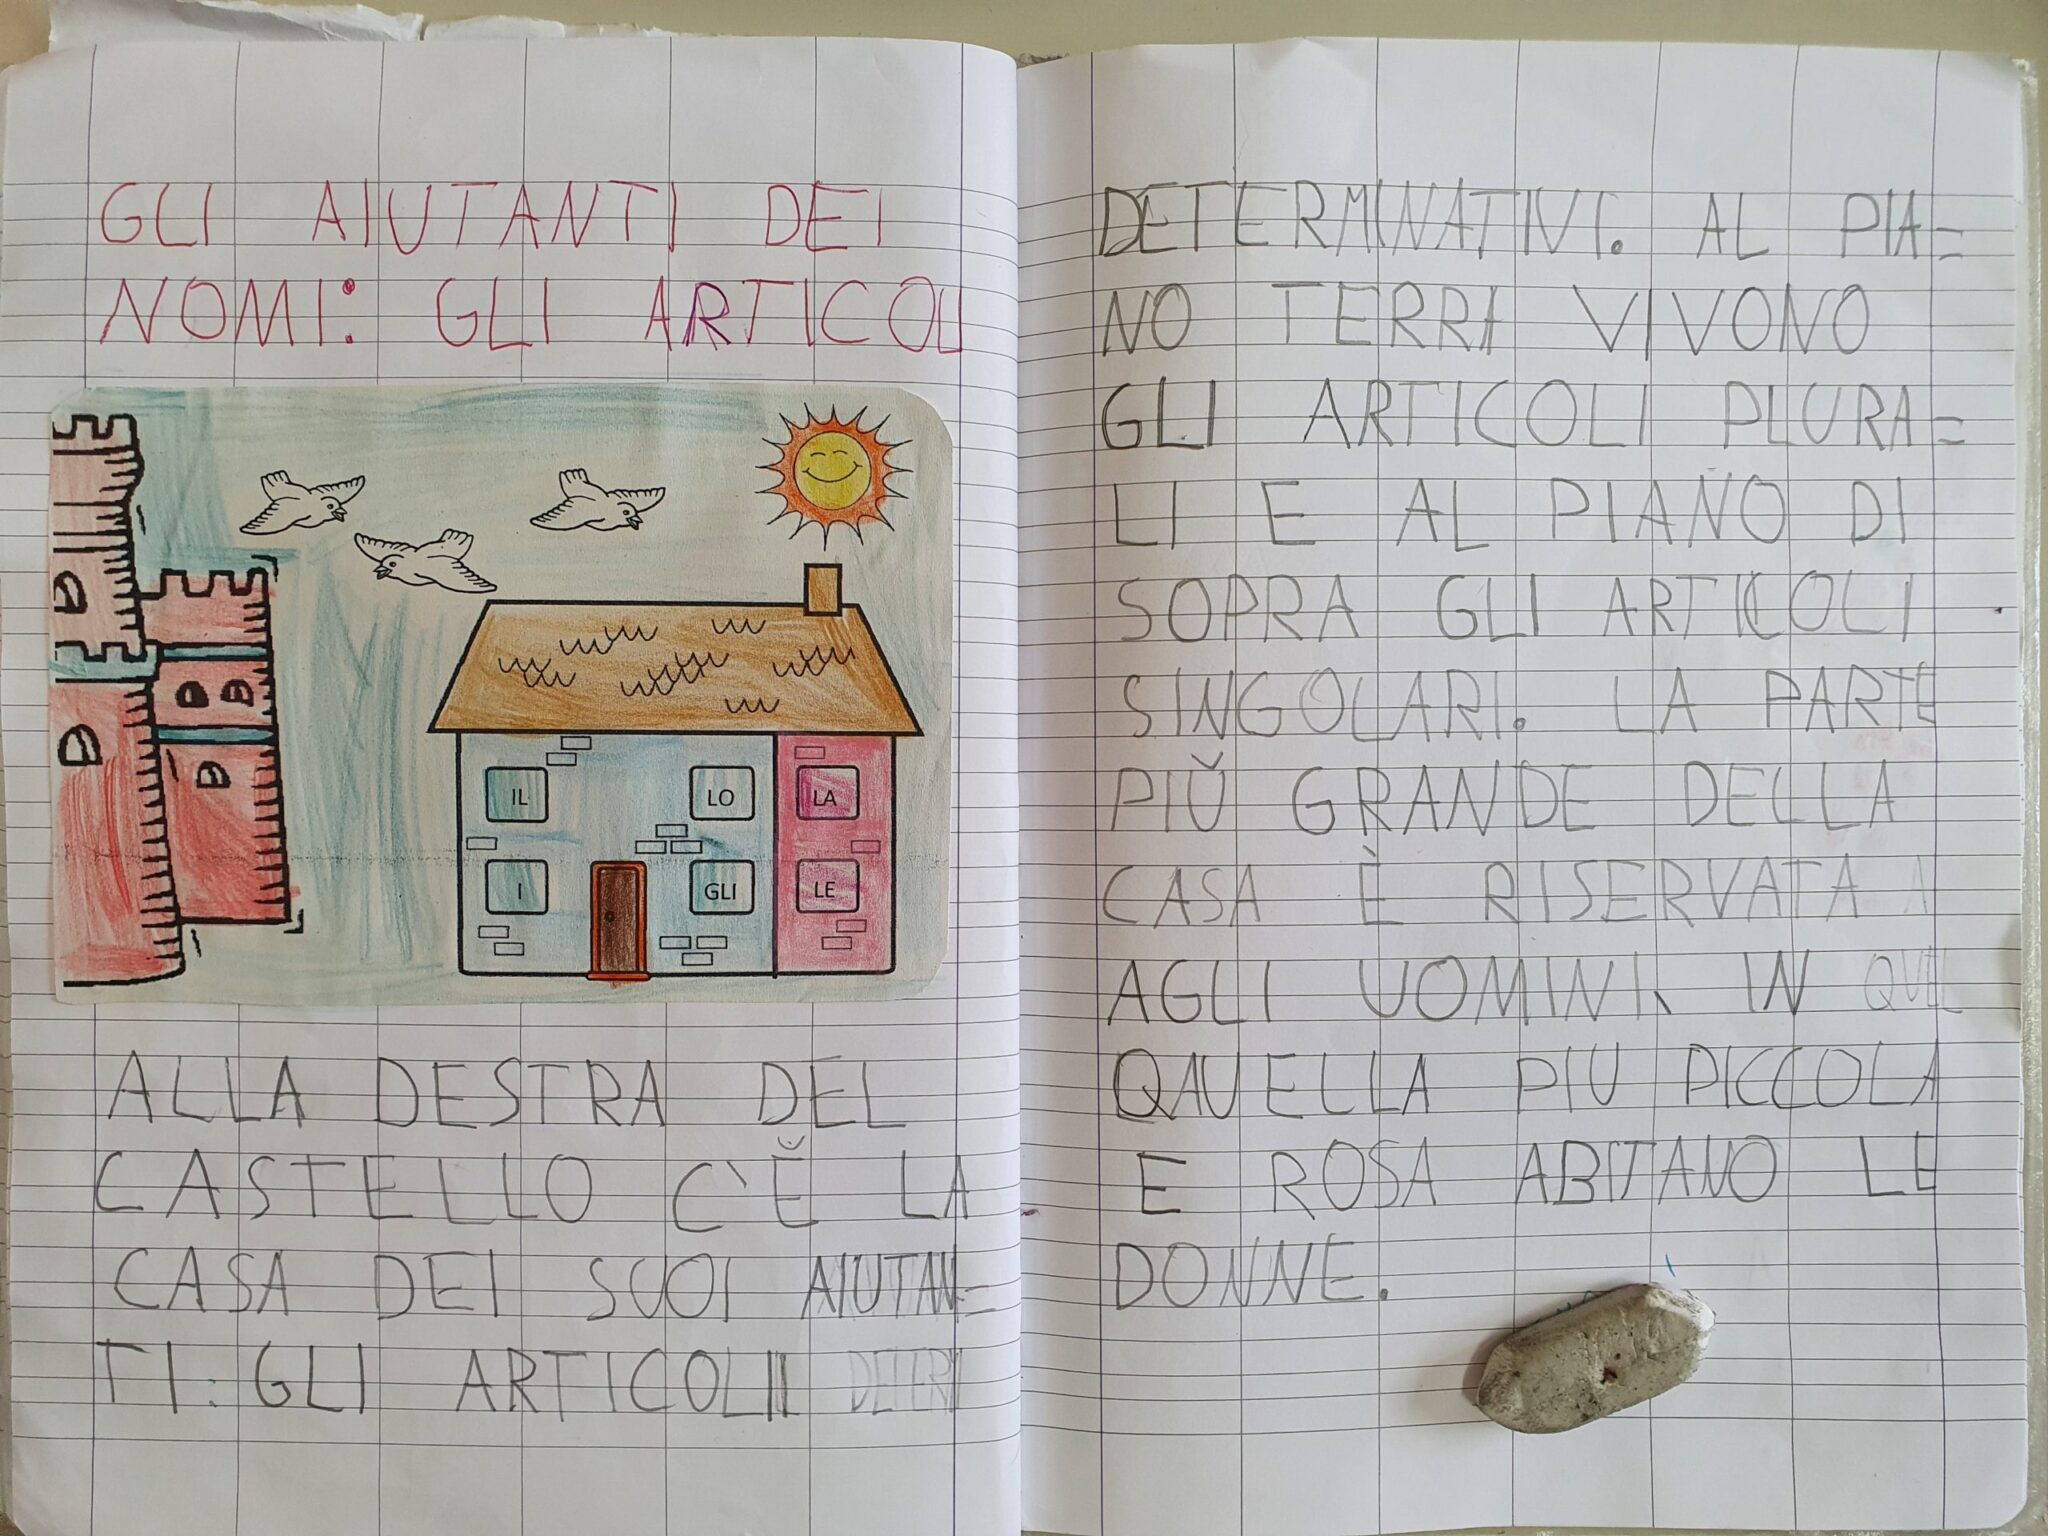 GLI AIUTANTI DEI
NOMI: GLI ARTICOLI
IL LO LA
I GLI LE
ALLA DESTRA DEL
CASTELLO C'È LA
CASA DEI SUOI AIUTAN=
TI: GLI ARTICOLI
DETERMINATIVI. AL PIA=
NO TERRA VIVONO
GLI ARTICOLI PLURA=
LI E AL PIANO DI
SOPRA GLI ARTICOLI
SINGOLARI. LA PARTE
PIÙ GRANDE DELLA
CASA È RISERVATA
AGLI UOMINI. IN
QUELLA PIU PICCOLA
E ROSA ABITANO LE
DONNE.